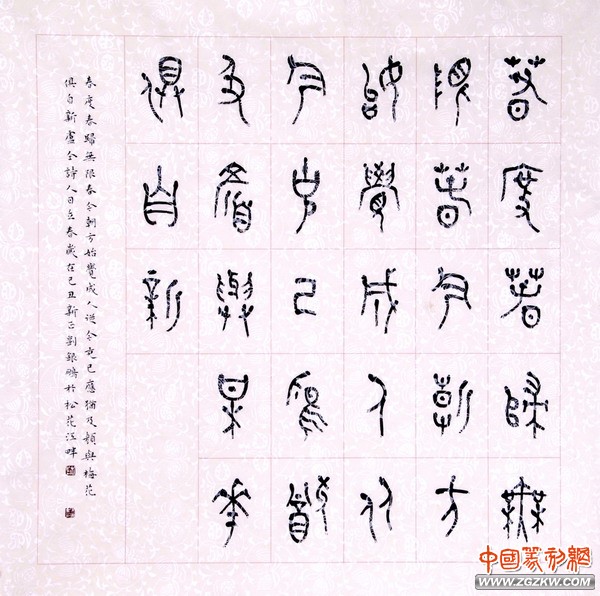 春度春歸無
限春今朝方
始覺成人從
今克己應猶
及顏與梅花
俱自新
春度春歸無限春今朝方始覺成人從今克己應猶及顏與梅花
俱自新盧仝詩人日立春歲在己丑新正劉銀鵬於松花江畔
中國篆刻網
WWW.ZGZKW.COM